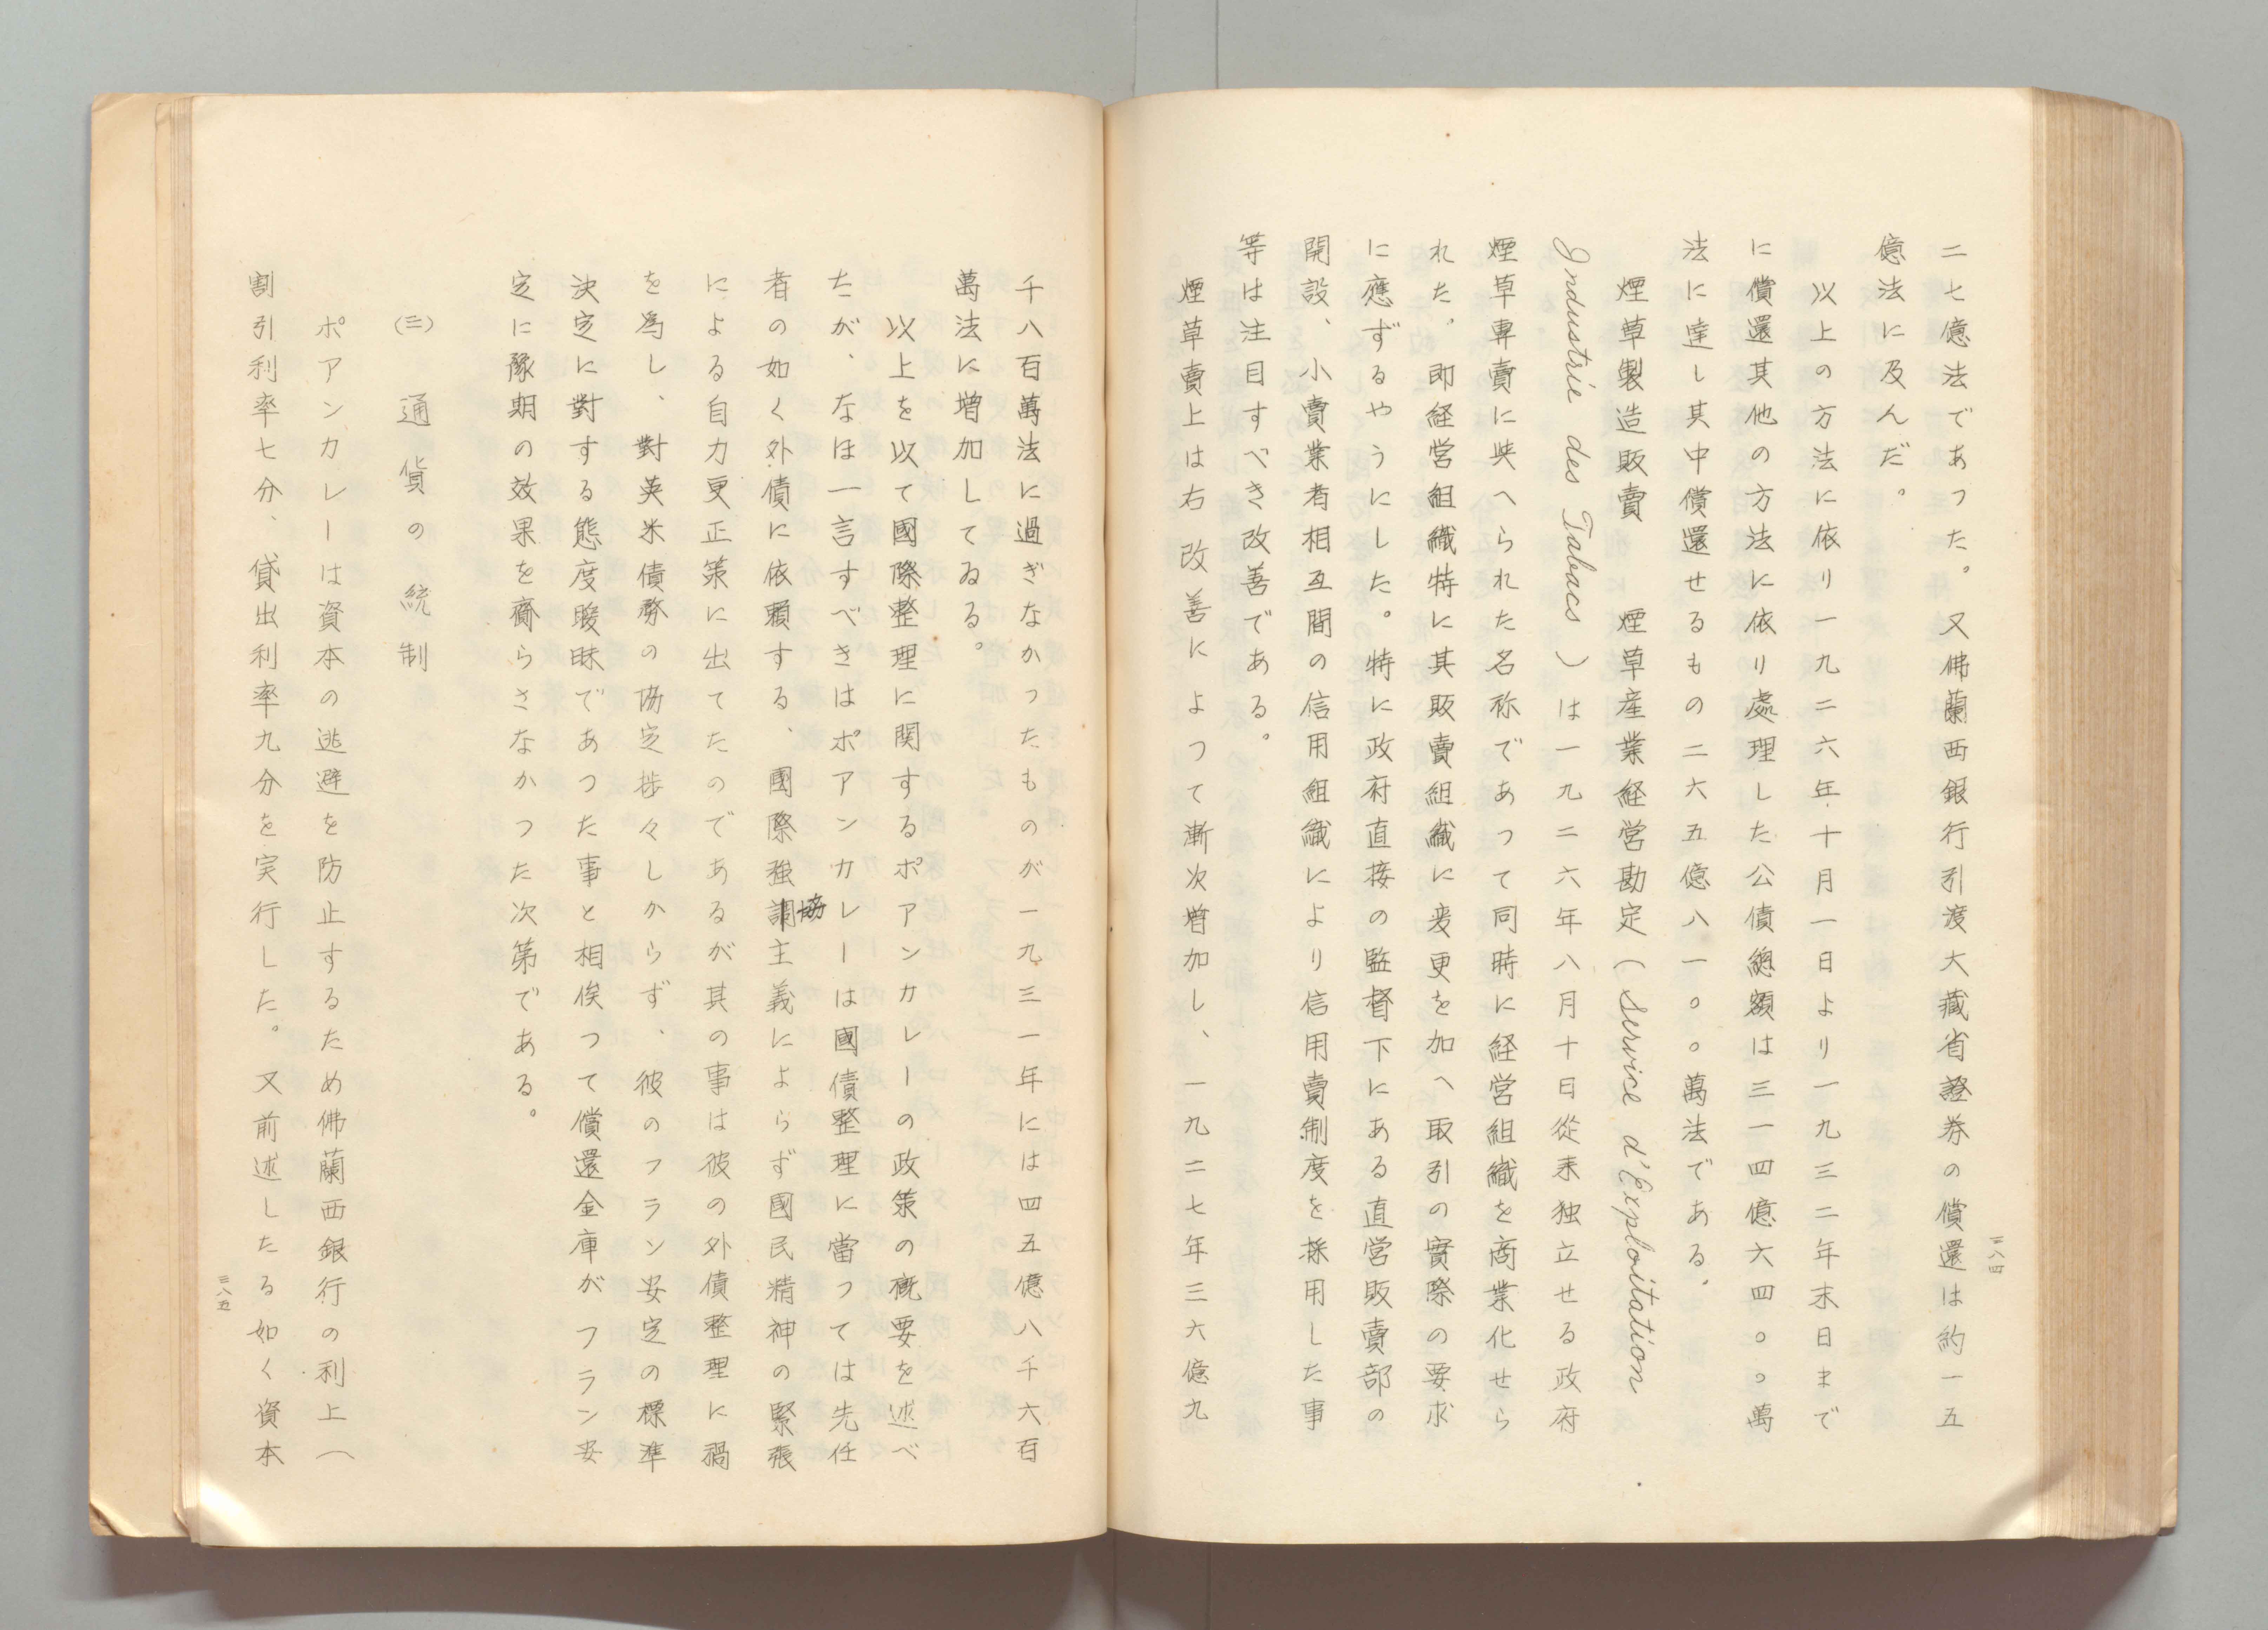 二七億法であつた。又佛蘭西銀行引渡大藏省證券の償還は約一五
億法に及んだ。
以上の方法に依り一九二六年十月一日より一九三二年末日まで
に償還其他の方法に依り處理した公債總額は三一四億六四〇〇萬
法に達し其中償還せるもの二六五億八一〇〇萬法である。
煙草製造販賣 煙草産業経営勘定(Service d'Exploitation
Industrie des Tabacs)は一九二六年八月十日從来独立せる政府
煙草專賣に與へられた名称であつて同時に経営組織を商業化せら
れた。即経営組織特に其販賣組織に変更を加へ取引の實際の要求
に應ずるやうにした。特に政府直接の監督下にある直営販賣部の
開設、小賣業者相互間の信用組織により信用賣制度を採用した事
等は注目すべき改善である。
煙草賣上は右改善によつて漸次増加し、一九二七年三六億九
三八四
千八百萬法に過ぎなかつたものが一九三一年には四五億八千六百
萬法に増加してゐる。
以上を以て國際整理に関するポアンカレーの政策の概要を述べ
たが、なほ一言すべきはポアンカレーは國債整理に當つては先任
者の如く外債に依頼する、國際強調協主義によらず國民精神の緊張
による自力更正策に出てたのであるが其の事は彼の外債整理に禍
を爲し、對英米債務の協定捗々しからず、彼のフラン安定の標準
決定に對する態度曖昧であつた事と相俟つて償還金庫がフラン安
定に豫期の效果を齎らさなかつた次第である。
(三) 通貨の統制
ポアンカレーは資本の逃避を防止するため佛蘭西銀行の利上(
割引利率七分、貸出利率九分を実行した。又前述したる如く資本
三八五